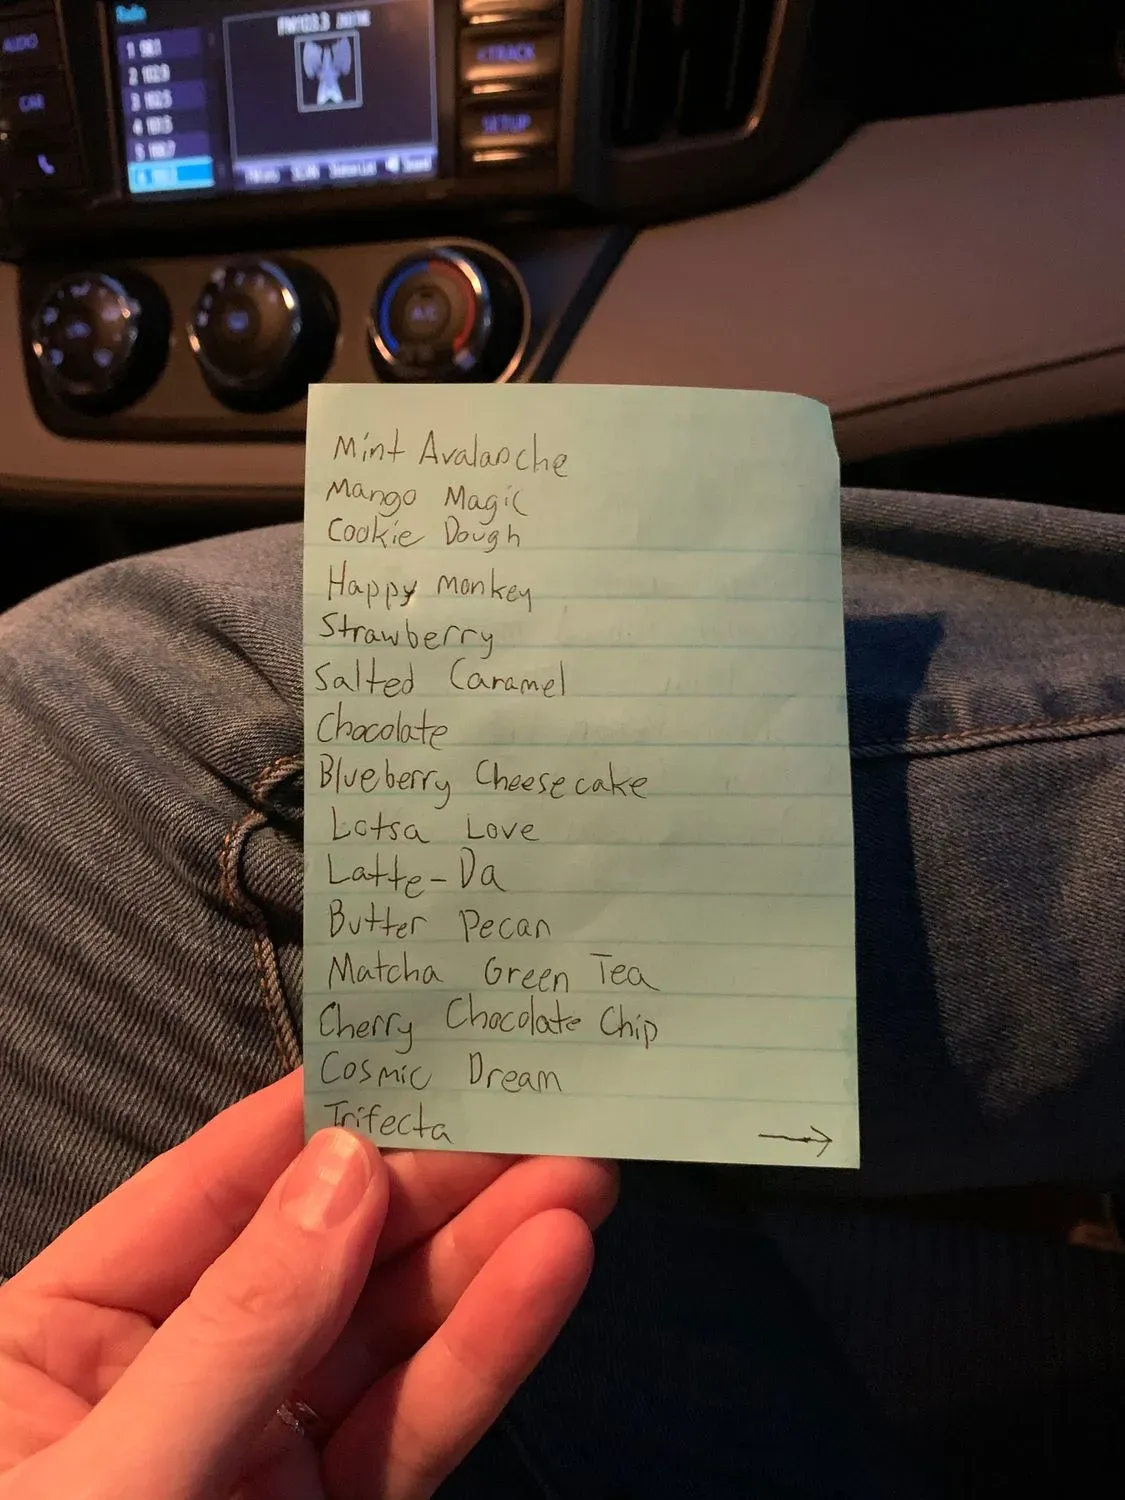 Radio
AUDIO
CAR
TRACK
SETUP
A/C
Mint Avalanche
Mango Magic
Cookie Dough
Happy Monkey
Strawberry
Salted Caramel
Chocolate
Blueberry Cheesecake
Lotsa Love
Latte-Da
Butter Pecan
Matcha Green Tea
Cherry Chocolate Chip
Cosmic Dream
Trifecta
→